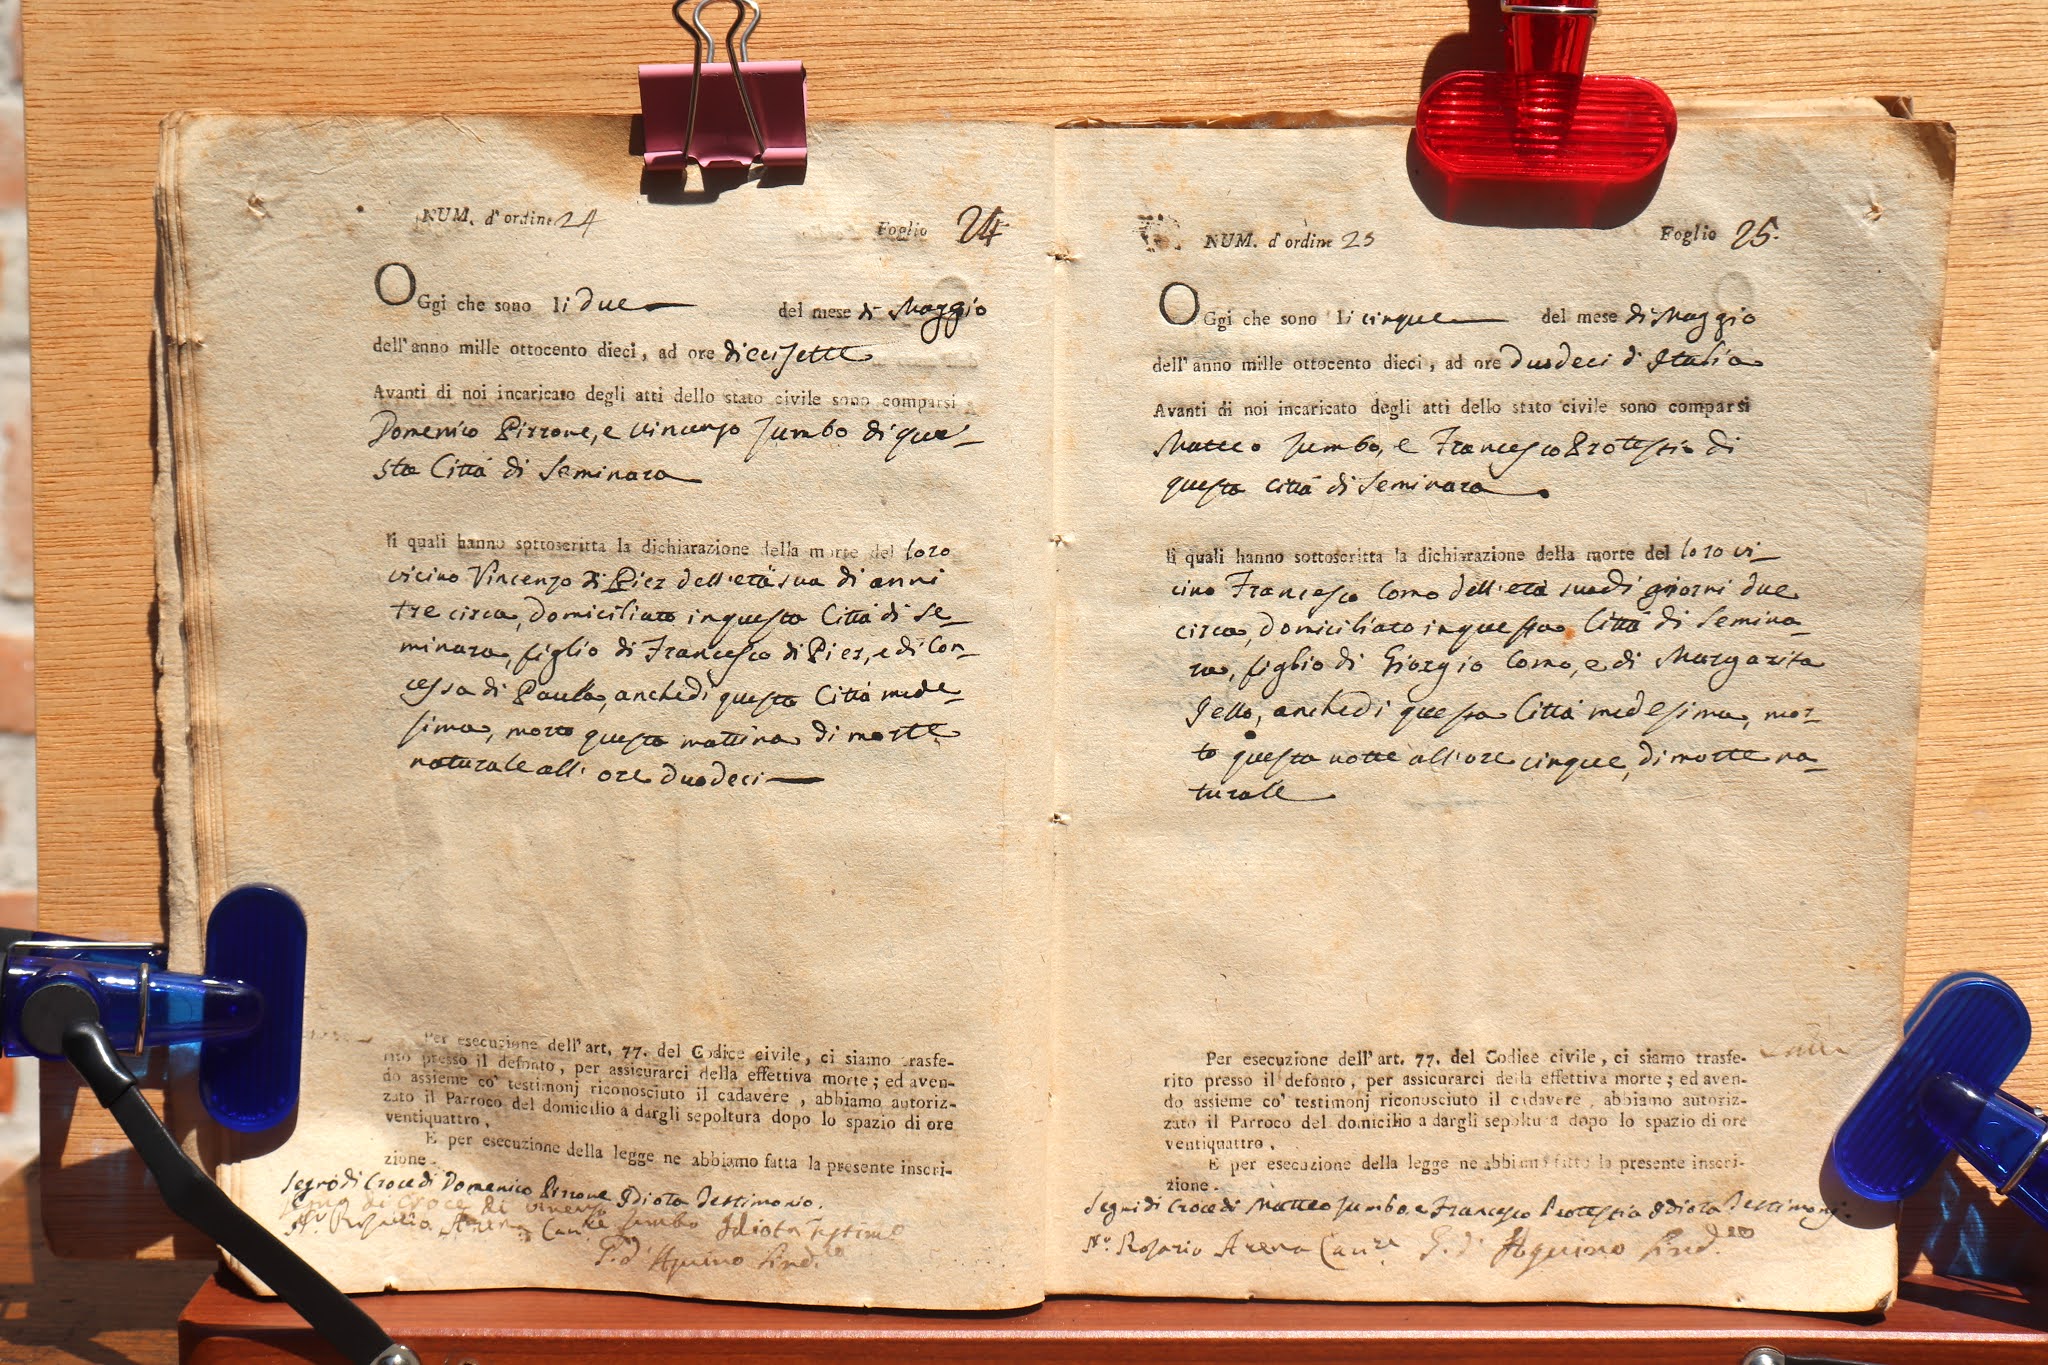 NUM. d'ordine 24
Foglio 24
OGgi che sono li due del mese di Maggio
dell'anno mille ottocento dieci, ad ore diecisette
Avanti di noi incaricato degli atti dello stato civile sono comparsi
Domenico Pirrone, e Vincenzo Jumbo di que-
sta Città di Seminara
li quali hanno sottoscritta la dichiarazione della morte del loro
vicino Vincenzo di Pier dell'età sua di anni
tre circa, domiciliato in questa Città di Se-
minara, figlio di Francesco di Pier, e di Con-
cessa di Paula, anche di questa Città mede-
sima, morto questa mattina di morte
naturale all'ore duodeci
Per esecuzione dell'art. 77. del Codice civile, ci siamo trasfe-
rito presso il defonto, per assicurarci della effettiva morte; ed aven-
do assieme co' testimonj riconosciuto il cadavere, abbiamo autoriz-
zato il Parroco del domicilio a dargli sepoltura dopo lo spazio di ore
ventiquattro.
E per esecuzione della legge ne abbiamo fatta la presente inscri-
zione.
Segno di Croce di Domenico Pirrone Idiota Testimonio.
Segno di Croce di Vincenzo Jumbo Idiota Testimo
Nr. Rosario Arena Canre
G. d'Aquino Sind.co
NUM. d'ordine 25
Foglio 25.
OGgi che sono li cinque del mese di Maggio
dell'anno mille ottocento dieci, ad ore duodeci d'Italia
Avanti di noi incaricato degli atti dello stato civile sono comparsi
Matteo Jumbo, e Francesco Protestio di
questa Città di Seminara
li quali hanno sottoscritta la dichiarazione della morte del loro vi-
cino Francesco Como dell'età sua di giorni due
circa, domiciliato in questa Città di Semina-
ra, figlio di Giorgio Como, e di Margarita
Jello, anche di questa Città medesima, mor-
to questa notte all'ore cinque, di morte na-
turale
Per esecuzione dell'art. 77. del Codice civile, ci siamo trasfe-
rito presso il defonto, per assicurarci della effettiva morte; ed aven-
do assieme co' testimonj riconosciuto il cadavere, abbiamo autoriz-
zato il Parroco del domicilio a dargli sepoltura dopo lo spazio di ore
ventiquattro.
E per esecuzione della legge ne abbiamo fatta la presente inscri-
zione.
Segni di Croce di Matteo Jumbo, e Francesco Protestia Idiota Testimonj.
Nr. Rosario Arena Canre G. d'Aquino Sind.co